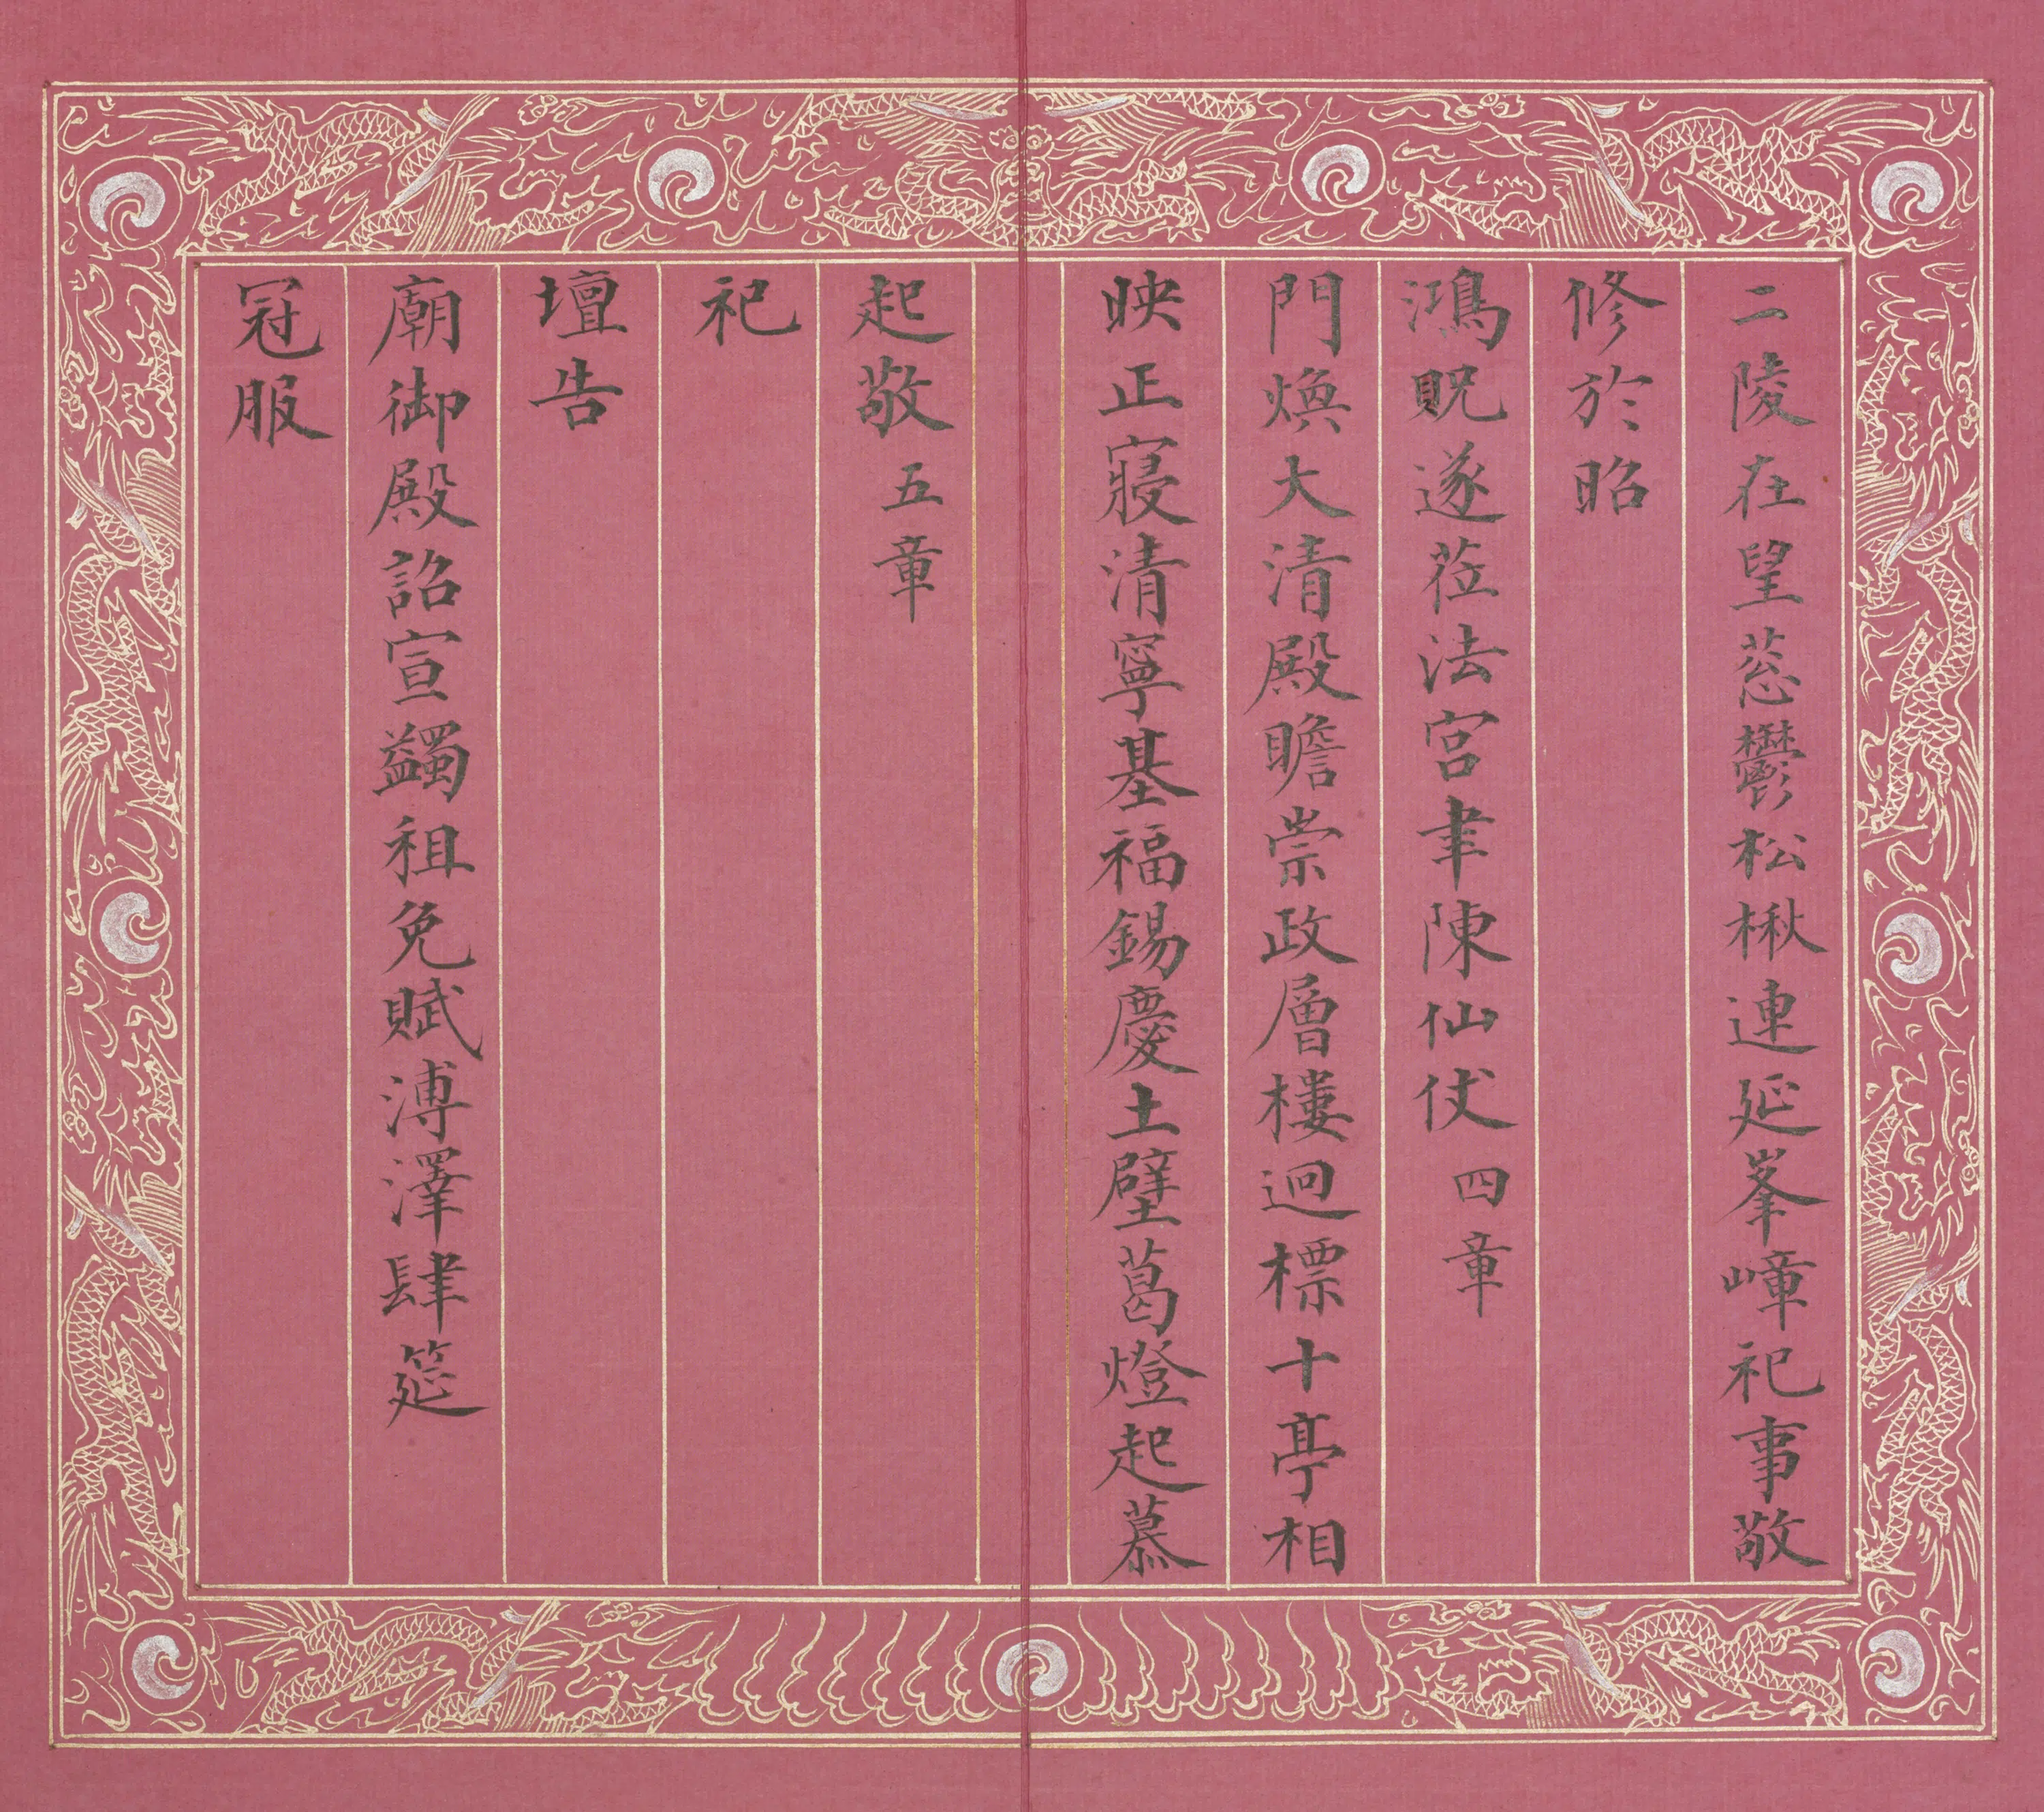 二陵在望蒽鬱松楸連延峯嶂祀事敬
修於昭
鴻貺遂莅法宮聿陳仙仗四章
門煥大清殿瞻崇政層樓迥標十亭相
映正寢清寧基福錫慶土壁葛燈起慕
起敬五章
祀
壇告
廟御殿詔宣蠲租免賦溥澤肆筵
冠服